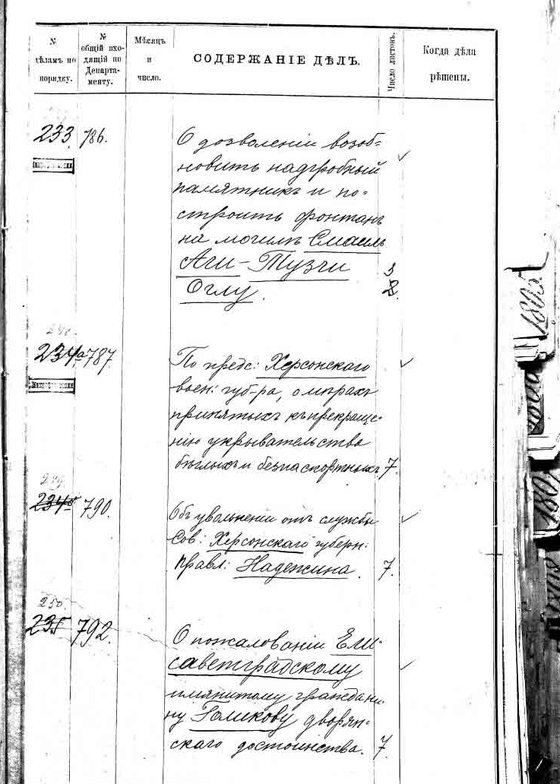 №
дѣламъ по
порядку.
№
общій вхо-
дящій по
Департа-
менту.
Мѣсяцъ
и
число.
СОДЕРЖАНІЕ ДѢЛЪ.
Число листовъ.
Когда дѣла
рѣшены.
233. 786.
О дозволеніи возоб-
новить надгробный
памятникъ и по-
строить фонтанъ
на могилѣ Смаиль
Аги-Тузчи
Оглу.
234а 787
По предс: Херсонскаго
воен: губ-ра, о мѣрахъ
принятыхъ къ прекраще-
нію укрывательства
бѣглыхъ и безпаспортныхъ 7.
249.
790.
Объ увольненіи отъ службы
Сов: Херсонскаго губерн:
правл: Надежина. 7.
250.
235 792.
О пожалованіи Ели-
саветградскому
имянитому граждани-
ну Голикову дворян-
скаго достоинства. 7
1805.